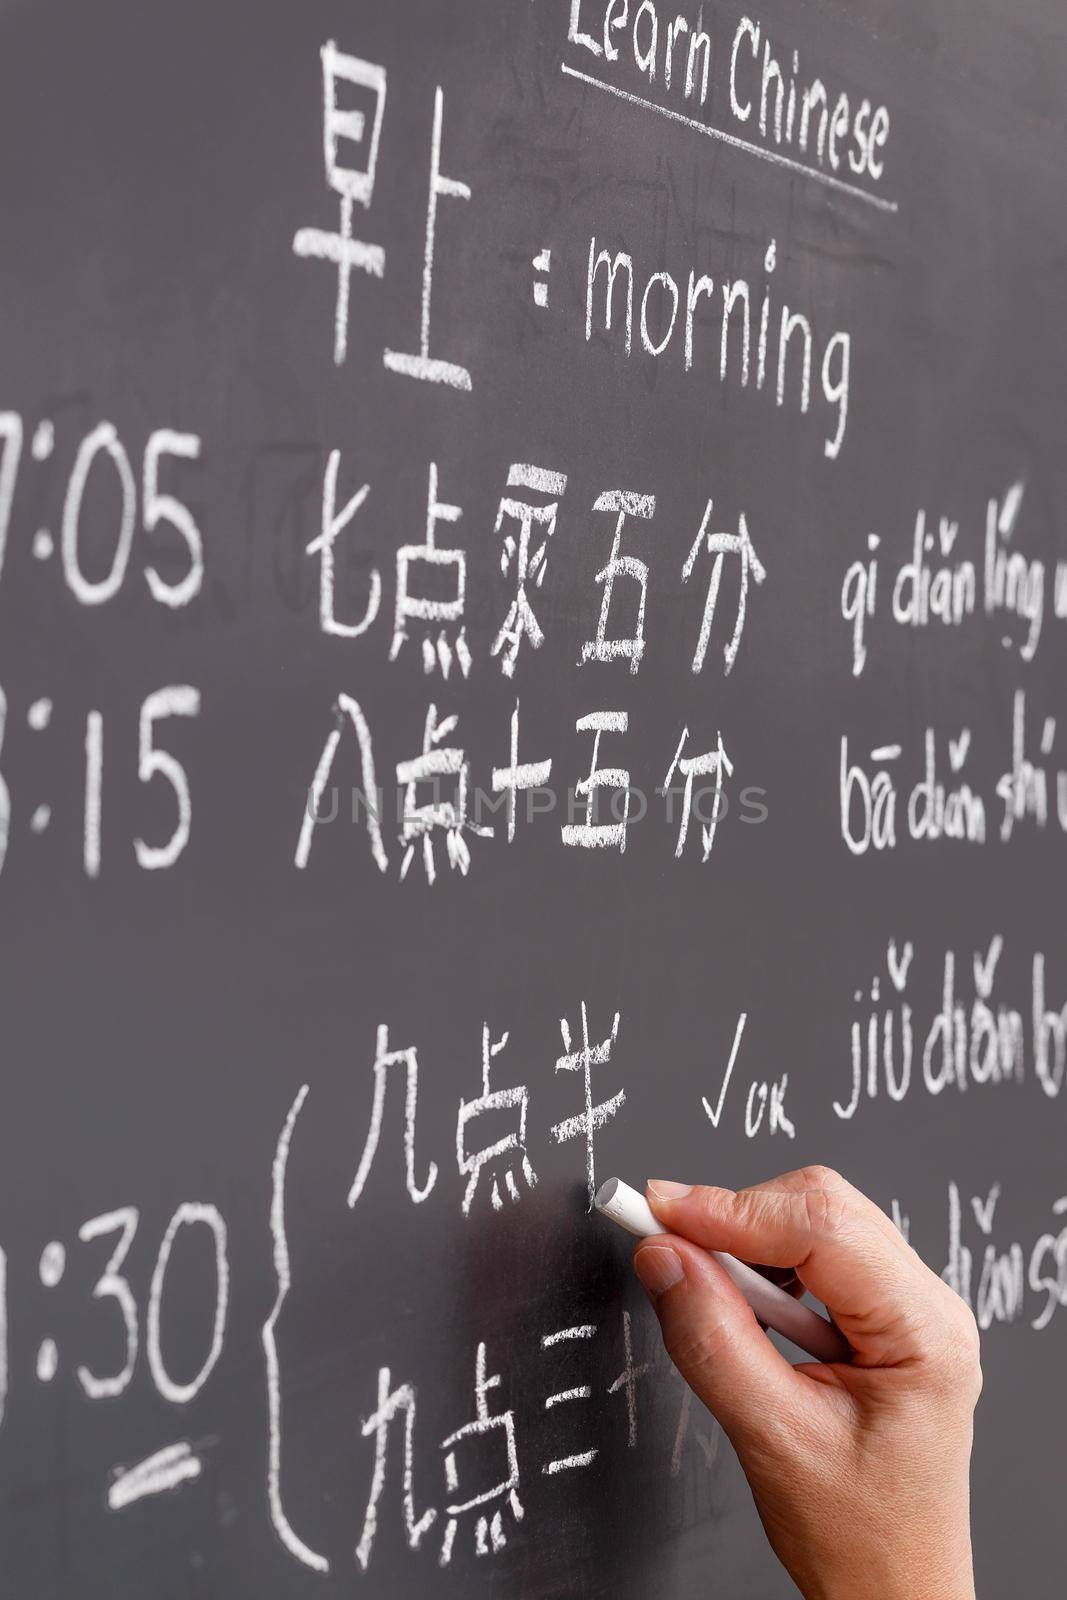 Learn Chinese
早上 : morning
7:05 七点零五分 qi diǎn líng
:15 八点十五分 bā diǎn shí
九点半 √ OK jiǔ diǎn b
:30
九点三十 diǎn s
UNLIMPHOTOS